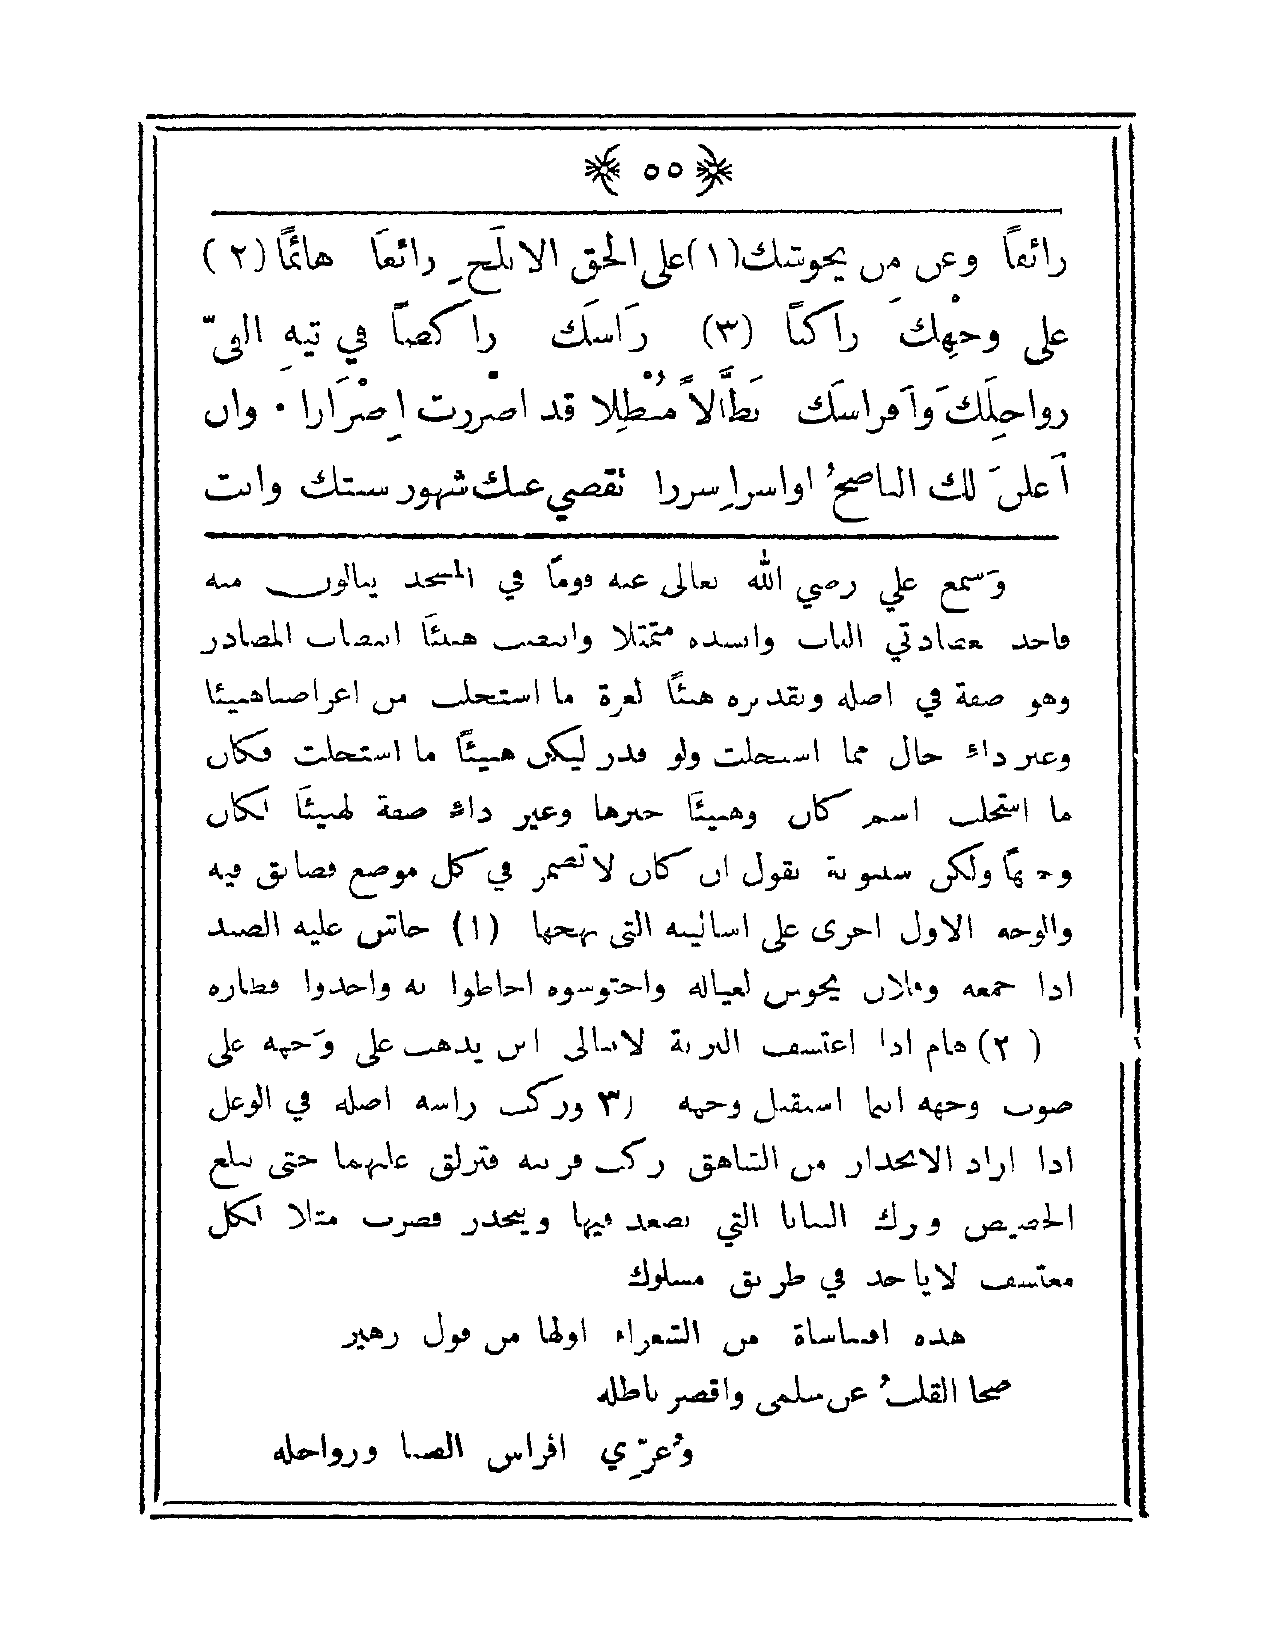 ﴿ ٥٥ ﴾
رائغاً وعن من يحوشك (١) على الحق الابلَجِ رائغاً هائماً (٢)
على وجْهِكَ راكباً (٣) رَأسَكَ راكضاً في تيهِ الغيّ
رواحِلَكَ وأَفراسَكَ بَطَّالاً مُبْطِلا قد اصْررت إصْرَارا ٠ وان
أَعلَنَ لك الناصحُ اواسرإِسررا تقضي عنك شهور سنتك وانت
وَسمع علي رضي الله تعالى عنه قوماً في المسجد ينالون منه
فاخذ بعضادتي الباب وانشده متمثلا وانتصب هنيئاً انتصاب المصادر
وهو صفة في اصله وتقديره هنيئاً لعزة ما استحلت من اعراضناهنيئا
وغير داءٍ حال مما استحلت ولو قدر ليكن هنيئاً ما استحلت فكان
ما استحلت اسم كان وهنيئاً خبرها وغير داءٍ صفة لهنيئاً لكان
وجهاً ولكن سيبويه يقول ان كان لا تضمر في كل موضع فضايق فيه
والوجه الاول اجرى على اساليبه التي نهجها (١) حاش عليه الصيد
اذا جمعه وفلان يحوس لعياله واحتوشوه احاطوا به واخذوا قطاره
(٢) هام اذا اعتسف البرية لايبالى اين يذهب على وَجهه على
صوب وجهه اينما استقبل وجهه (٣) وركب راسه اصله في الوعل
اذا اراد الانحدار من الشاهق ركب قرنيه فتزلق عليهما حتى يبلغ
الحضيض وترك الثنايا التي يصعد فيها وينحدر فضرب مثلا لكل
معتسف لاياخذ في طريق مسلوك
هذه اقتباساة من الشعراء اولها من قول زهير
صحا القلبُ عن سلمى واقصر باطله
وعُرِّي افراس الصبا ورواحله